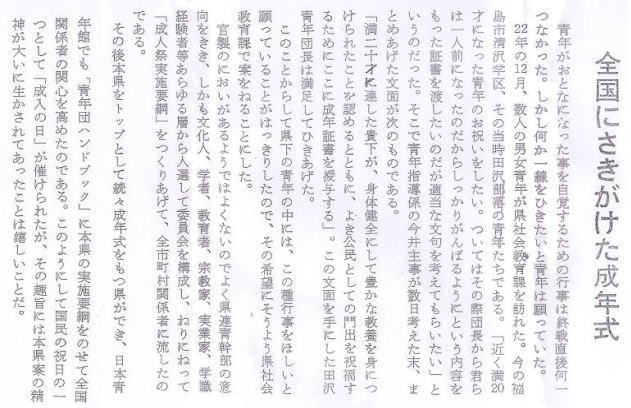 全国にさきがけた成年式
青年がおとなになった事を自覚するための行事は終戦直後何一
つなかった。しかし何か一線をひきたいと青年は願っていた。
22年の12月、数人の男女青年が県社会教育課を訪れた。今の福
島市清沢学区、その当時田沢部落の青年たちである。「近く満20
才になった青年のお祝いをしたい。ついてはその際団長から君ら
は一人前になったのだからしっかりがんばるようにという内容を
もった証書を渡したいのだが適当な文句を考えてもらいたい」と
いうのだった。そこで青年指導係の今井主事が数日考えた末、ま
とめあげた文面が次のものである。
「満二十才に達した貴下が、身体健全にして豊かな教養を身につ
けられたことを認めるとともに、よき公民としての門出を祝福す
るためにここに成年証書を授与する」。この文面を手にした田沢
青年団長は満足してひきあげた。
このことからして県下の青年の中には、この種行事をほしいと
願っていることがはっきりしたので、その希望にそうよう県社会
教育課で案をねることにした。
官製のにおいがあるようではよくないのでよく県連青幹部の意
向をきき、しかも文化人、学者、教育者、宗教家、実業家、学識
経験者等あらゆる層から人選して委員会を構成し、ねりにねって
「成人祭実施要綱」をつくりあげて、全市町村関係者に流したの
である。
その後本県をトップとして続々成年式をもつ県ができ、日本青
年館でも「青年団ハンドブック」に本県の実施要綱をのせて全国
関係者の関心を高めたのである。このようにして国民の祝日の一
つとして「成人の日」が催けられたが、その趣旨には本県案の精
神が大いに生かされてあったことは嬉しいことだ。